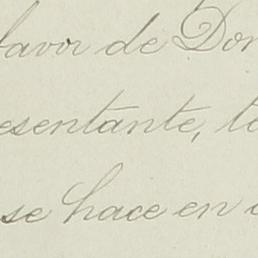 favor de Don
esentante, to
se hace en